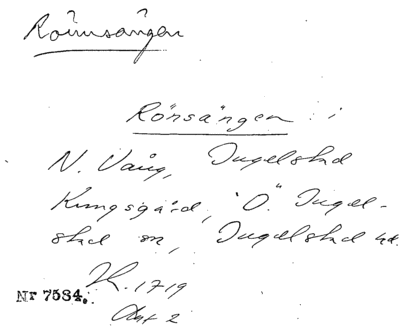 Rönnsången
Rönsängen i
N. Vång, Ingelstad
Kungsgård, "Ö. Ingel-
stad sn, Ingelstad hd.
K. 1719
Akt 2
Nr 7584.